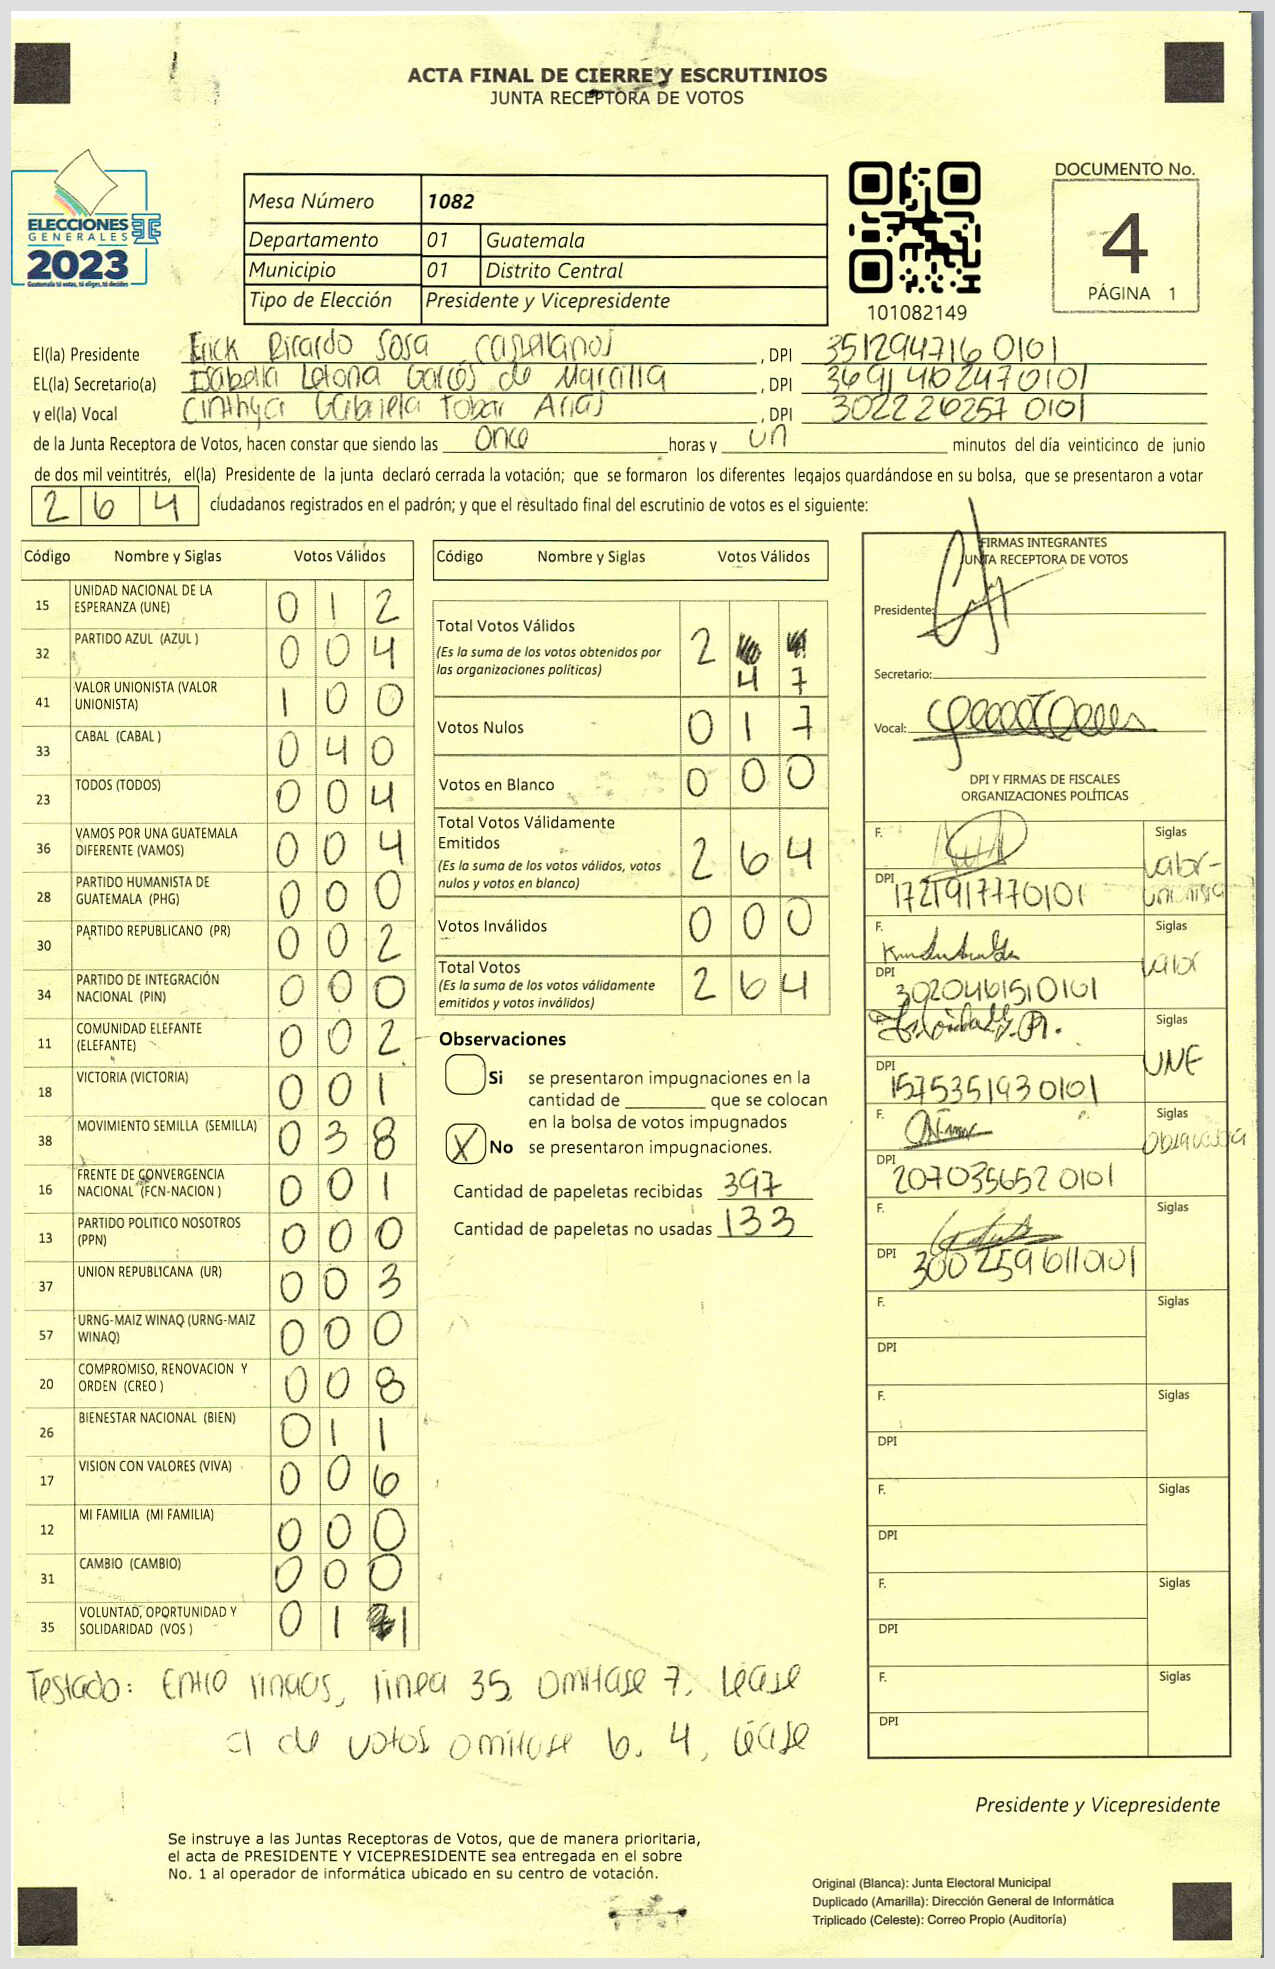 ACTA FINAL DE CIERRE Y ESCRUTINIOS
JUNTA RECEPTORA DE VOTOS
ELECCIONES
GENERALES
2023
Guatemala tú votas, tú eliges, tú decides
Mesa Número 1082
Departamento 01 Guatemala
Municipio 01 Distrito Central
Tipo de Elección Presidente y Vicepresidente
101082149
DOCUMENTO No.
4
PÁGINA 1
El(la) Presidente Erick Ricardo Sosa Castellanos, DPI 351294716 0101
EL(la) Secretario(a) Isabella Letona Garcés de, DPI 3691 40247 0101
y el(la) Vocal Cinthya Gabriela Tobar Arias, DPI 302226257 0101
de la Junta Receptora de Votos, hacen constar que siendo las once horas y un minutos del día veinticinco de junio
de dos mil veintitrés, el(la) Presidente de la junta declaró cerrada la votación; que se formaron los diferentes legajos guardándose en su bolsa, que se presentaron a votar
264 ciudadanos registrados en el padrón; y que el resultado final del escrutinio de votos es el siguiente:
Código Nombre y Siglas Votos Válidos
15 UNIDAD NACIONAL DE LA ESPERANZA (UNE) 0 1 2
32 PARTIDO AZUL (AZUL ) 0 0 4
41 VALOR UNIONISTA (VALOR UNIONISTA) 1 0 0
33 CABAL (CABAL ) 0 4 0
23 TODOS (TODOS) 0 0 4
36 VAMOS POR UNA GUATEMALA DIFERENTE (VAMOS) 0 0 4
28 PARTIDO HUMANISTA DE GUATEMALA (PHG) 0 0 0
30 PARTIDO REPUBLICANO (PR) 0 0 2
34 PARTIDO DE INTEGRACIÓN NACIONAL (PIN) 0 0 0
11 COMUNIDAD ELEFANTE (ELEFANTE) 0 0 2
18 VICTORIA (VICTORIA) 0 0 1
38 MOVIMIENTO SEMILLA (SEMILLA) 0 3 8
16 FRENTE DE CONVERGENCIA NACIONAL (FCN-NACION ) 0 0 1
13 PARTIDO POLITICO NOSOTROS (PPN) 0 0 0
37 UNION REPUBLICANA (UR) 0 0 3
57 URNG-MAIZ WINAQ (URNG-MAIZ WINAQ) 0 0 0
20 COMPROMISO, RENOVACION Y ORDEN (CREO ) 0 0 8
26 BIENESTAR NACIONAL (BIEN) 0 1 1
17 VISION CON VALORES (VIVA) 0 0 6
12 MI FAMILIA (MI FAMILIA) 0 0 0
31 CAMBIO (CAMBIO) 0 0 0
35 VOLUNTAD, OPORTUNIDAD Y SOLIDARIDAD (VOS ) 0 1 1
Testado: Entre líneas, línea 35, omítase 7, Léase
de votos omítase 6, 4, léase
Código Nombre y Siglas Votos Válidos
Total Votos Válidos 2 4 7
(Es la suma de los votos obtenidos por
las organizaciones políticas)
Votos Nulos 0 1 7
Votos en Blanco 0 0 0
Total Votos Válidamente
Emitidos 2 6 4
(Es la suma de los votos válidos, votos
nulos y votos en blanco)
Votos Inválidos 0 0 0
Total Votos 2 6 4
(Es la suma de los votos válidamente
emitidos y votos inválidos)
Observaciones
Si se presentaron impugnaciones en la
cantidad de ________ que se colocan
en la bolsa de votos impugnados
X No se presentaron impugnaciones.
Cantidad de papeletas recibidas 397
Cantidad de papeletas no usadas 133
FIRMAS INTEGRANTES
JUNTA RECEPTORA DE VOTOS
Presidente:
Secretario:
Vocal:
DPI Y FIRMAS DE FISCALES
ORGANIZACIONES POLÍTICAS
F. Siglas Valor-unionista
DPI 1721917770101
F. Siglas Valor
DPI 3020461510101
Siglas UNE
DPI 1575351930101
F. Siglas
DPI 207035652 0101
F. Siglas
DPI 3002596110101
F. Siglas
DPI
F. Siglas
DPI
F. Siglas
DPI
F. Siglas
DPI
F. Siglas
DPI
Presidente y Vicepresidente
Se instruye a las Juntas Receptoras de Votos, que de manera prioritaria,
el acta de PRESIDENTE Y VICEPRESIDENTE sea entregada en el sobre
No. 1 al operador de informática ubicado en su centro de votación.
Original (Blanca): Junta Electoral Municipal
Duplicado (Amarilla): Dirección General de Informática
Triplicado (Celeste): Correo Propio (Auditoría)